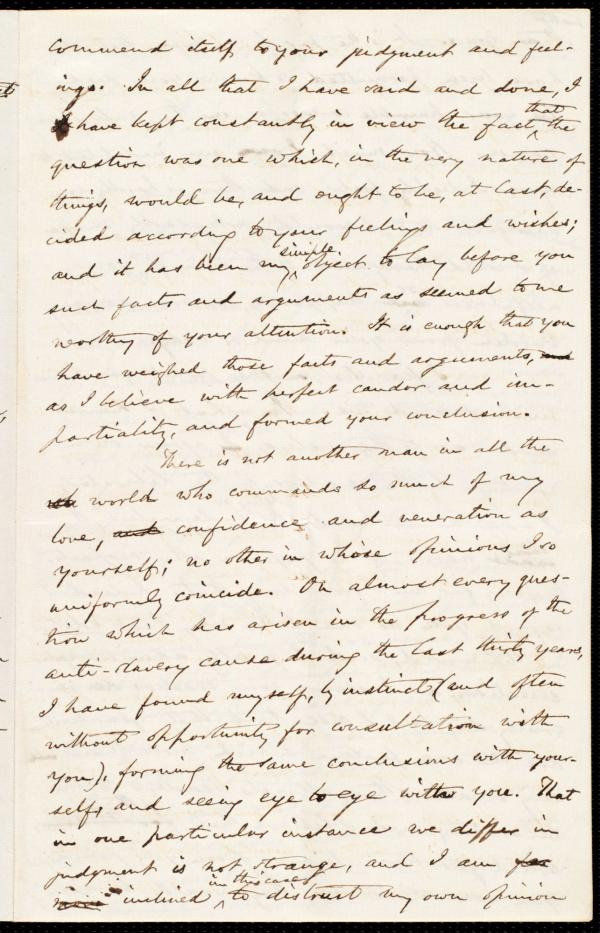 commend itself to your judgment and feel-
ings. In all that I have said and done, I
have kept constantly in view the fact that the
question was one which, in the very nature of
things, would be, and ought to be, at last, de-
cided according to your feelings and wishes;
and it has been my simple object to lay before you
such facts and arguments as seemed to me
worthy of your attention. It is enough that you
have weighed those facts and arguments, and
as I believe with perfect candor and im-
partiality, and formed your conclusion.
There is not another man in all the
world who commands so much of my
love, and confidence and veneration as
yourself; no other in whose opinions I so
uniformly coincide. On almost every ques-
tion which has arisen in the progress of the
anti-slavery cause during the last thirty years,
I have found myself, by instinct (and often
without opportunity for consultation with
you), forming the same conclusions with your-
self, and seeing eye to eye with you. That
in one particular instance we differ in
judgment is not strange, and I am far
more inclined in this case to distrust my own opinion